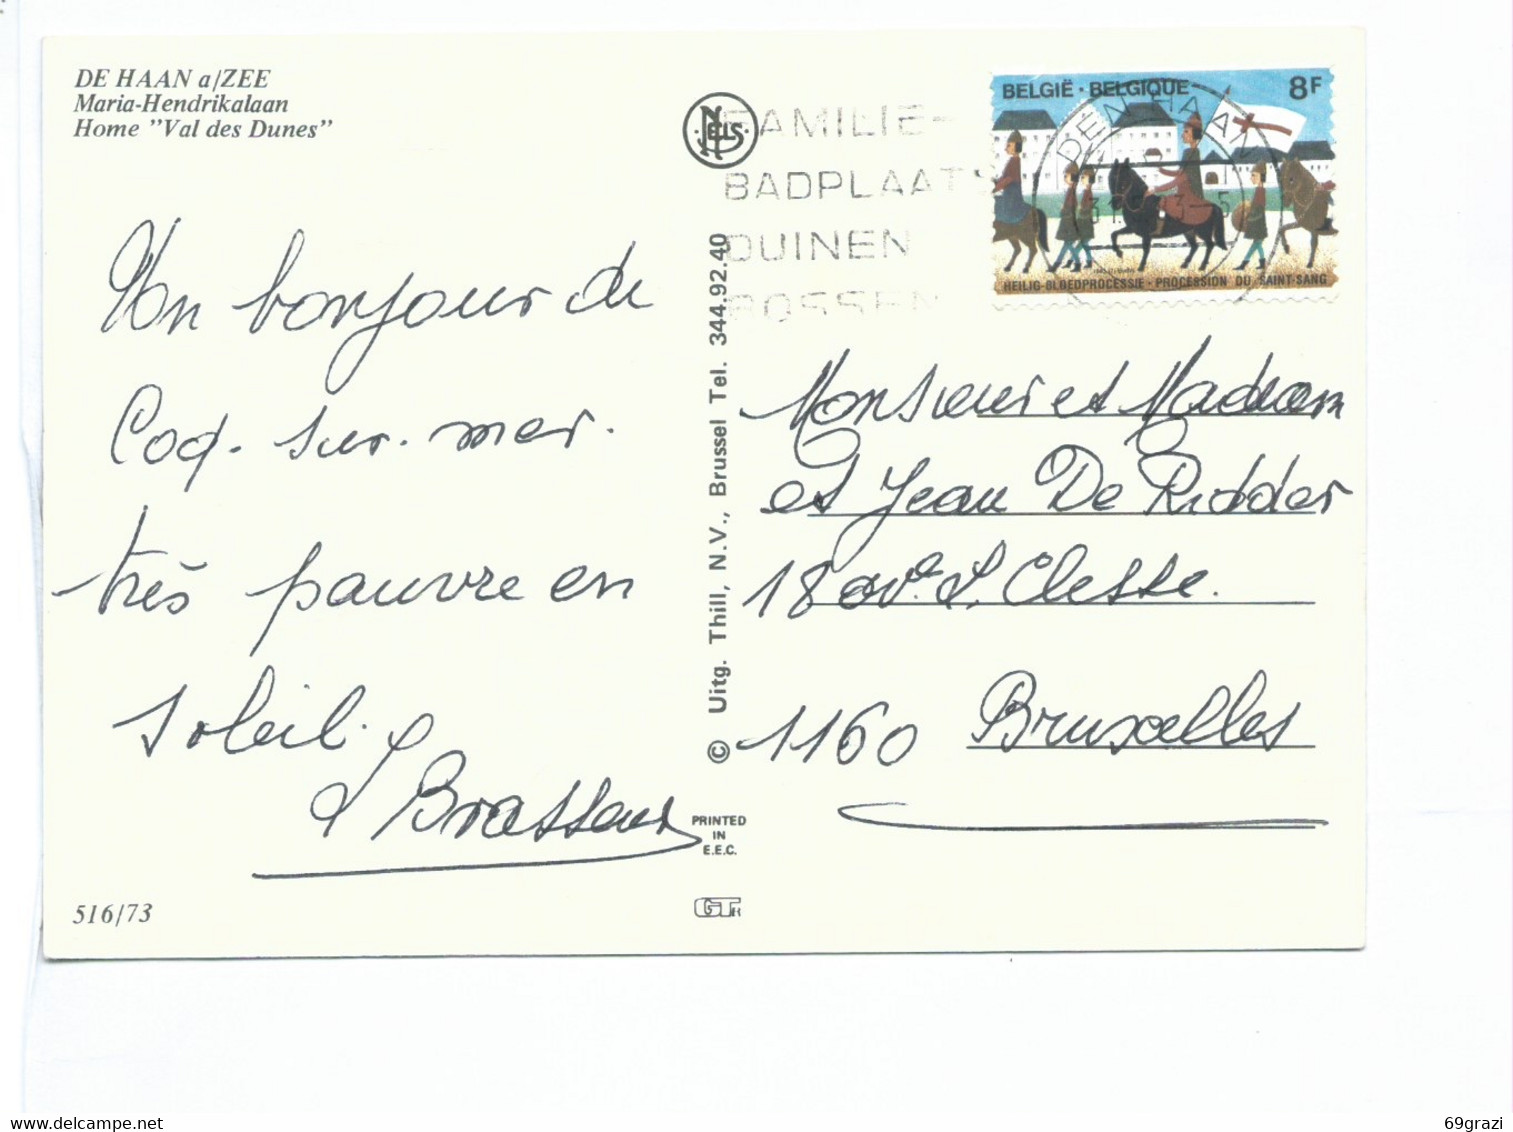 DE HAAN a/ZEE
Maria-Hendrikalaan
Home "Val des Dunes"
NELLS
FAMILIE-
BADPLAATS
DUINEN
BOSSEN
BELGIË · BELGIQUE 8F
DEN HAAN
HEILIG-BLOEDPROCESSIE · PROCESSION DU SAINT-SANG
Un bonjour de
Coq. sur. mer.
très pauvre en
soleil.
Brasseur
© Uitg. Thill, N.V., Brussel Tel. 344.92.40
Monsieur et Madam
et Jean De Ridder
18 ave. L. Clesse.
1160 Bruxelles
PRINTED
IN
E.E.C.
516/73
69grazi